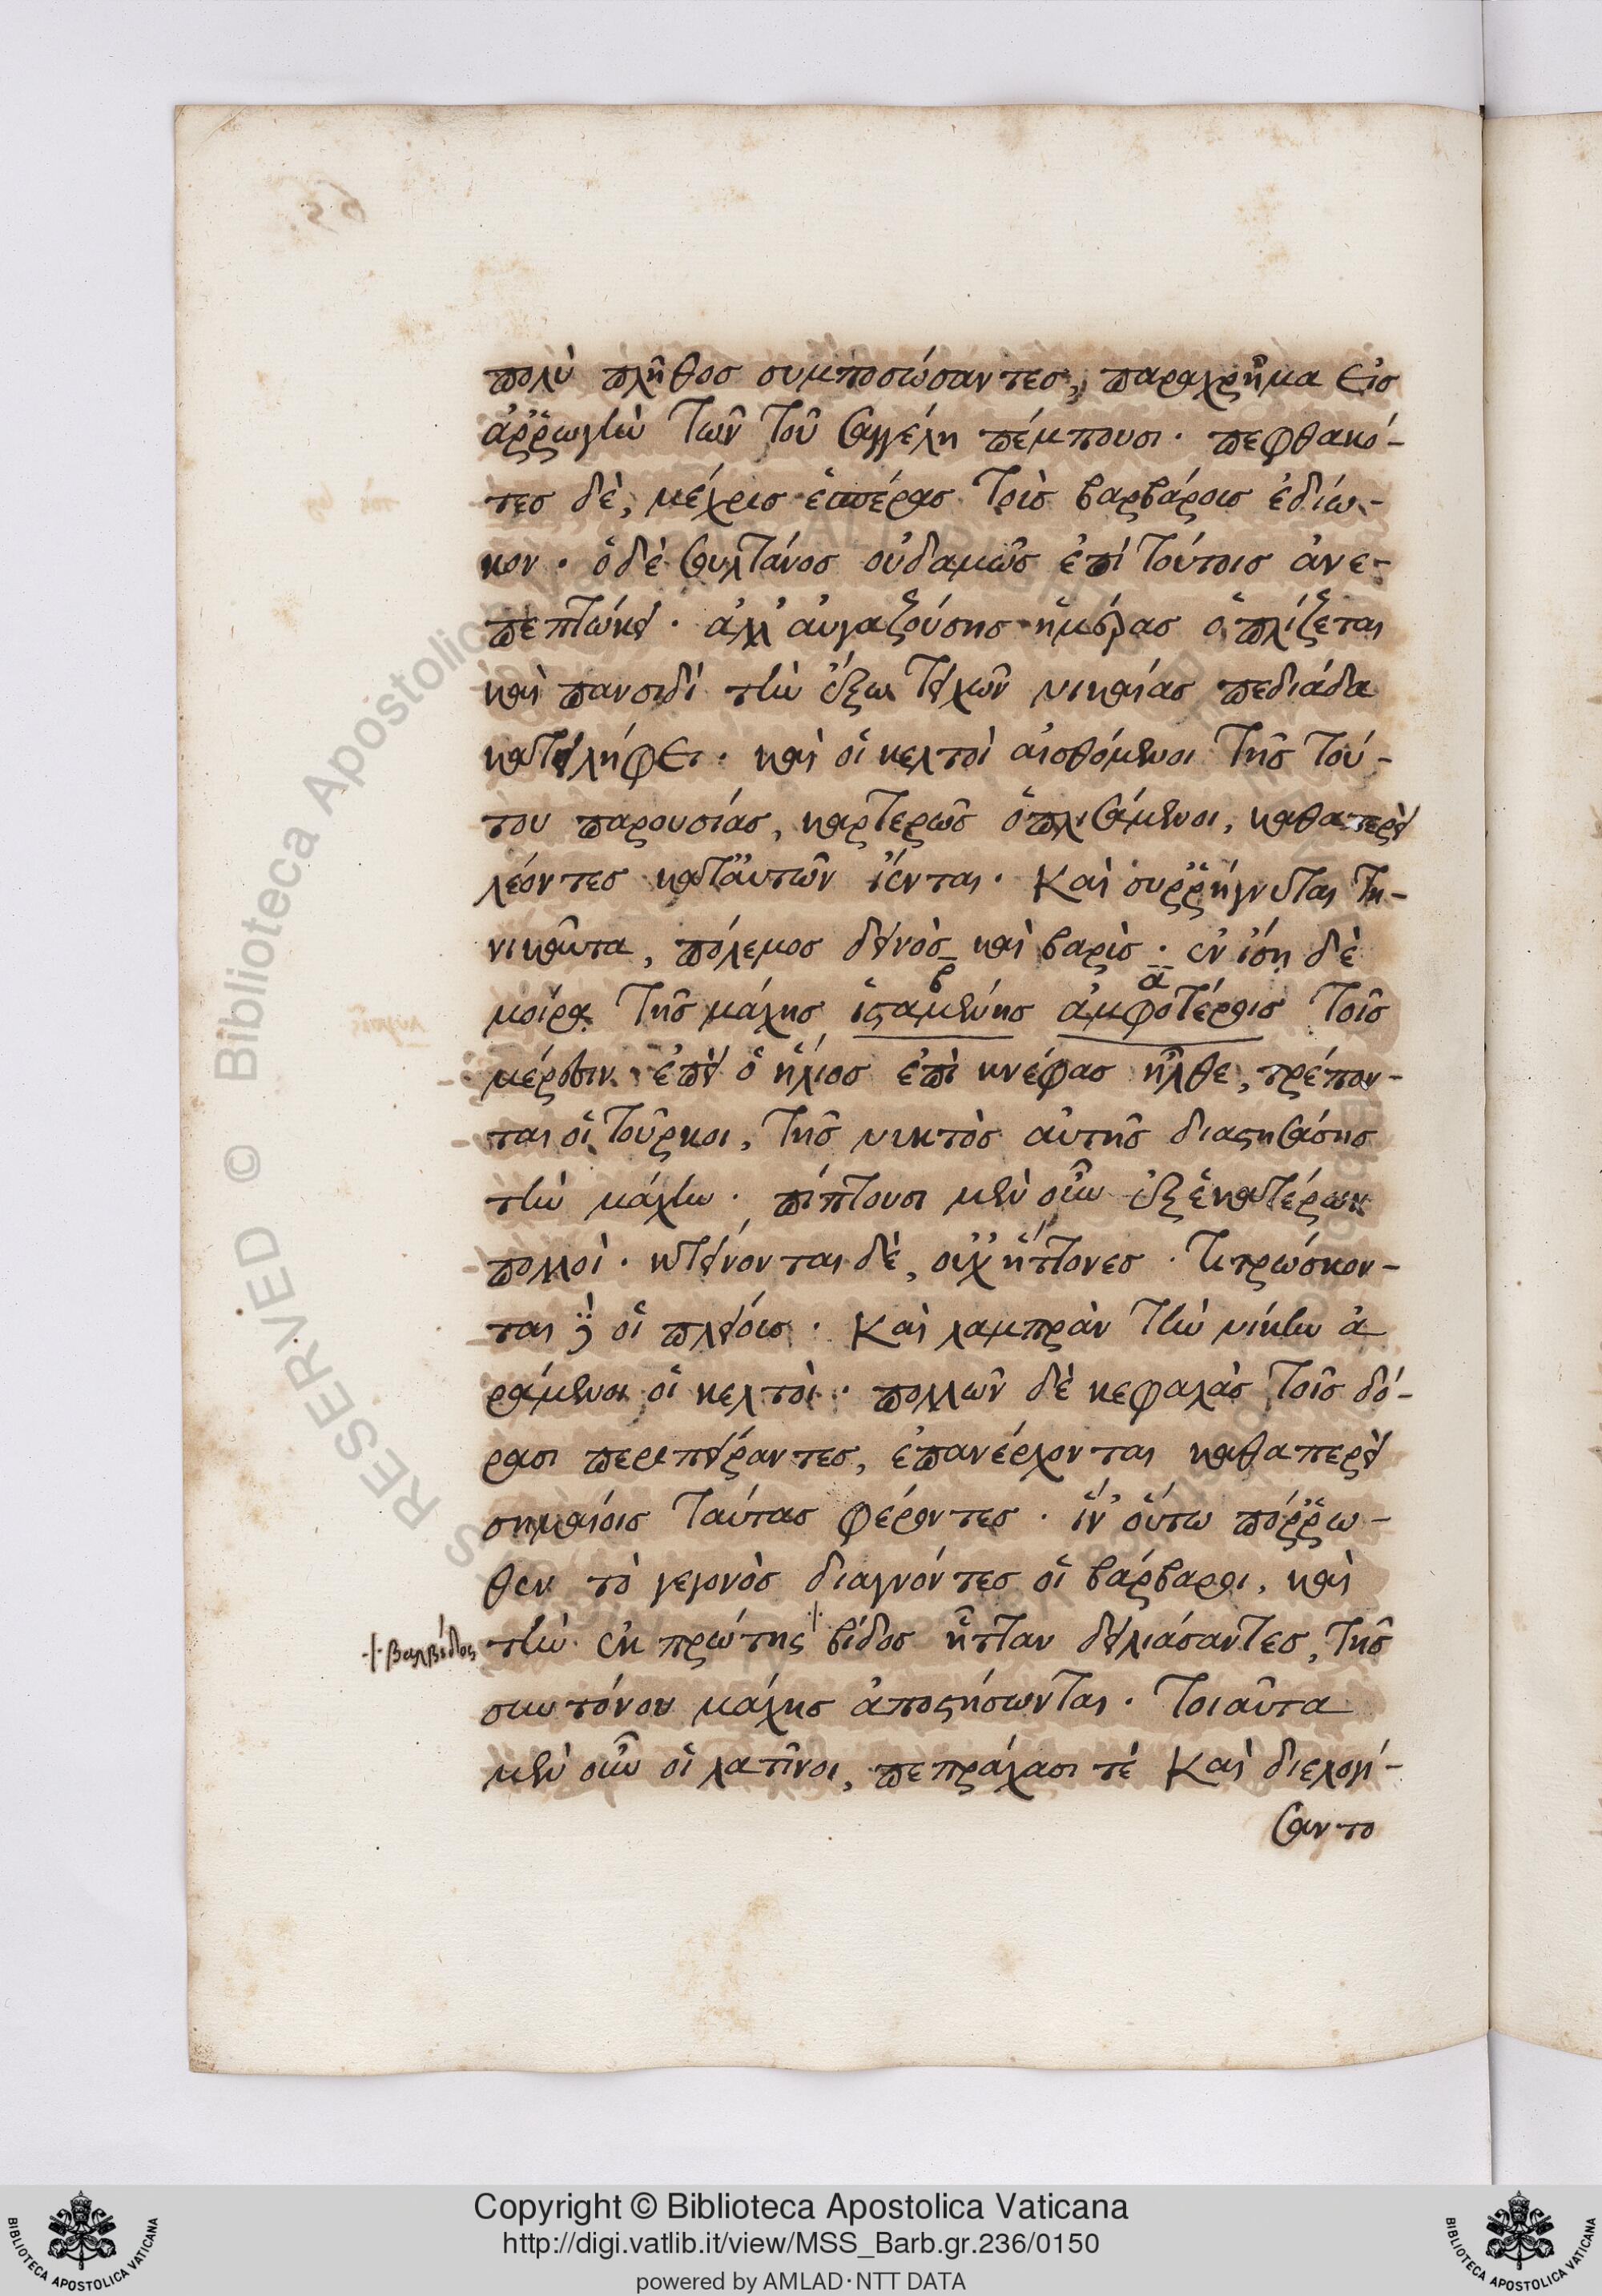 πολὺ πλῆθος συμποσώσαντες, παραχρῆμα εἰς
ἀῤῥωγὴν τῶν τοῦ σαγγέλη πέμπουσι. πεφθακό-
τες δὲ, μέχρις ἑσπέρας τοὺς βαρβάρους ἐδίω-
κον. ὁ δὲ σουλτάνος οὐδαμῶς ἐπὶ τούτοις ἀνε-
πεπτώκει. ἀλλ' αὐγαζούσης ἡμέρας ὁπλίζεται
καὶ πανσυδὶ τὴν ἔξω τειχῶν νικαίας πεδιάδα
κατειλήφει. καὶ οἱ κελτοὶ αἰσθόμενοι τῆς τού-
του παρουσίας, καρτερῶς ὁπλισάμενοι, καθαπερεὶ
λέοντες κατ' αὐτῶν ἵενται. καὶ συῤῥήγνυται τη-
νικαῦτα, πόλεμος δεινὸς καὶ βαρὺς. ἐν ἴση δὲ
β α
μοίρα τῆς μάχης ἱσταμένης ἀμφοτέροις τοῖς
μέρεσιν. ἐπεὶ ὁ ἥλιος ἐπὶ κνέφας ἦλθε, τρέπον-
ται οἱ τοῦρκοι, τῆς νυκτὸς αὐτῆς διαστησάσης
τὴν μάχην. πίπτουσι μὲν οὖν ἐξ ἑκατέρων
πολλοὶ. κτείνονται δὲ, οὐχ ἥττονες. τιτρώσκον-
ται δὲ οἱ πλείους. καὶ λαμπρὰν τὴν νίκην ἀ
ράμενοι οἱ κελτοὶ. πολλῶν δὲ κεφαλὰς τοῖς δό-
ρασι περιπείραντες, ἐπανέρχονται καθαπερεὶ
σημαίας ταύτας φέροντες. ἵν' οὕτω πόῤῥω-
θεν τὸ γεγονὸς διαγνόντες οἱ βάρβαροι, καὶ
τὴν ἐκ πρώτης βίδος ἧτταν δειλιάσαντες, τῆς
βαλβίδος
συντόνου μάχης ἀποστήσωνται. τοιαῦτα
μὲν οὖν οἱ λατῖνοι, πεπράχασι τὲ καὶ διελογί-
σαντο
Copyright © Biblioteca Apostolica Vaticana
http://digi.vatlib.it/view/MSS_Barb.gr.236/0150
powered by AMLAD·NTT DATA